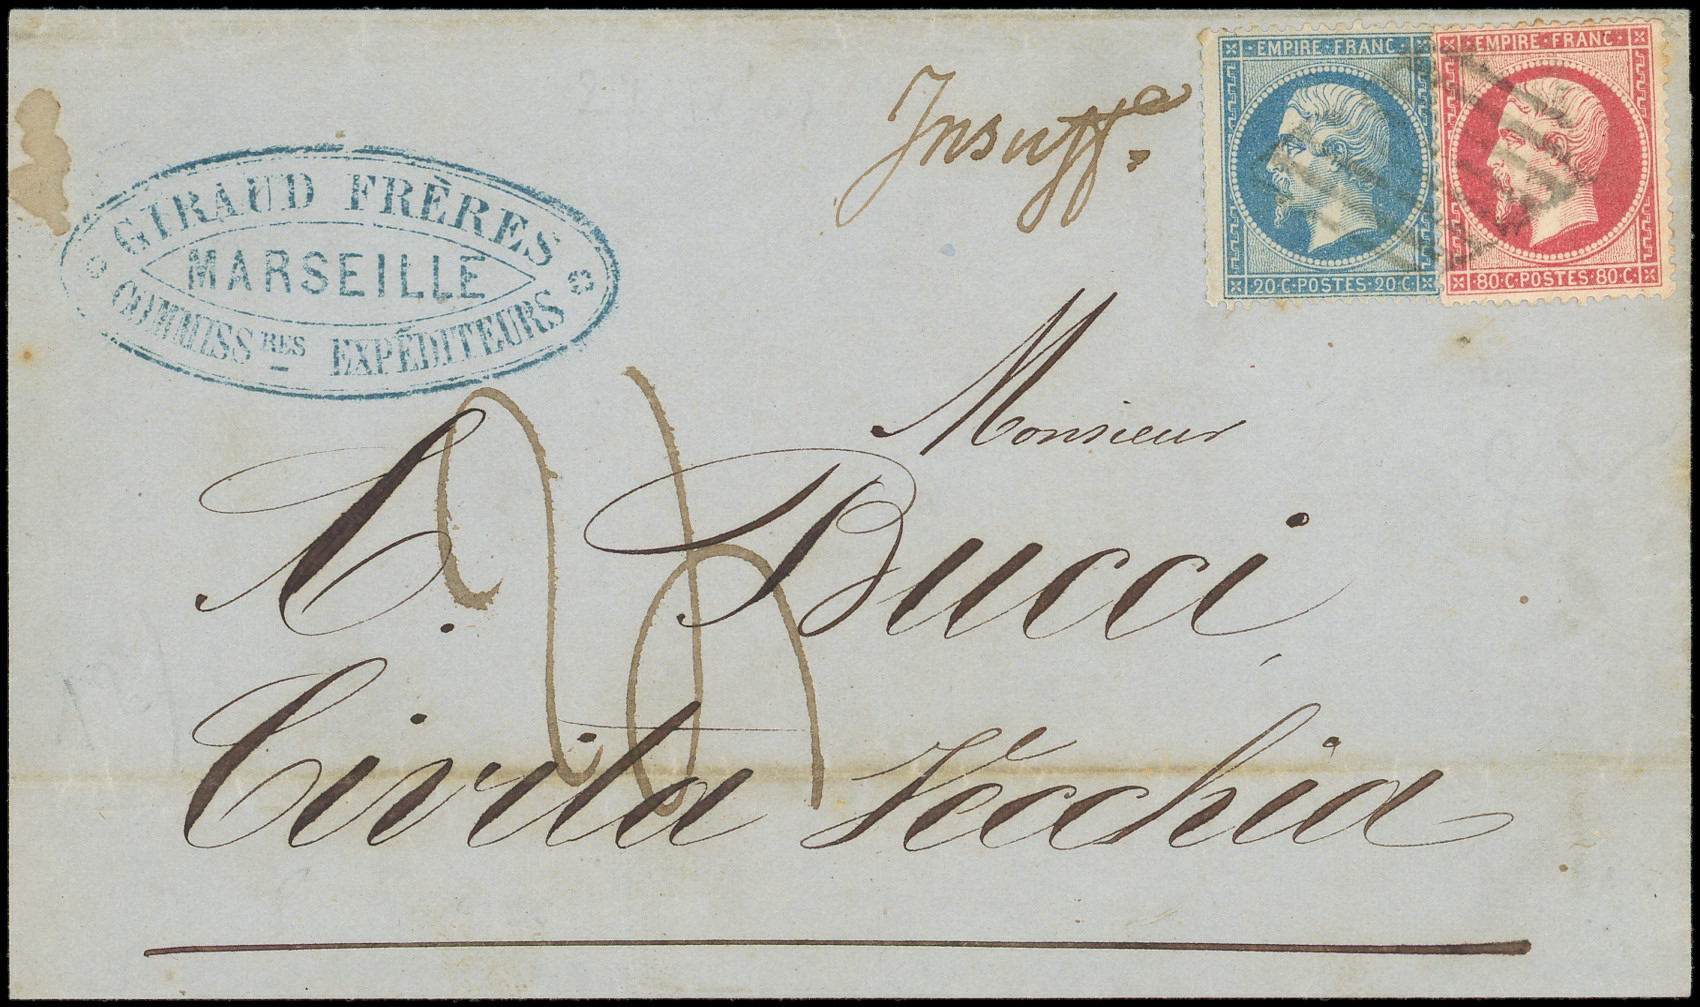 GIRAUD FRÈRES
MARSEILLE
COMMISS^RES EXPÉDITEURS
Insuff.
EMPIRE·FRANC·
20·C·POSTES·20·C·
EMPIRE·FRANC·
80·C·POSTES·80·C·
Monsieur
A. Ducci
Civita Vecchia